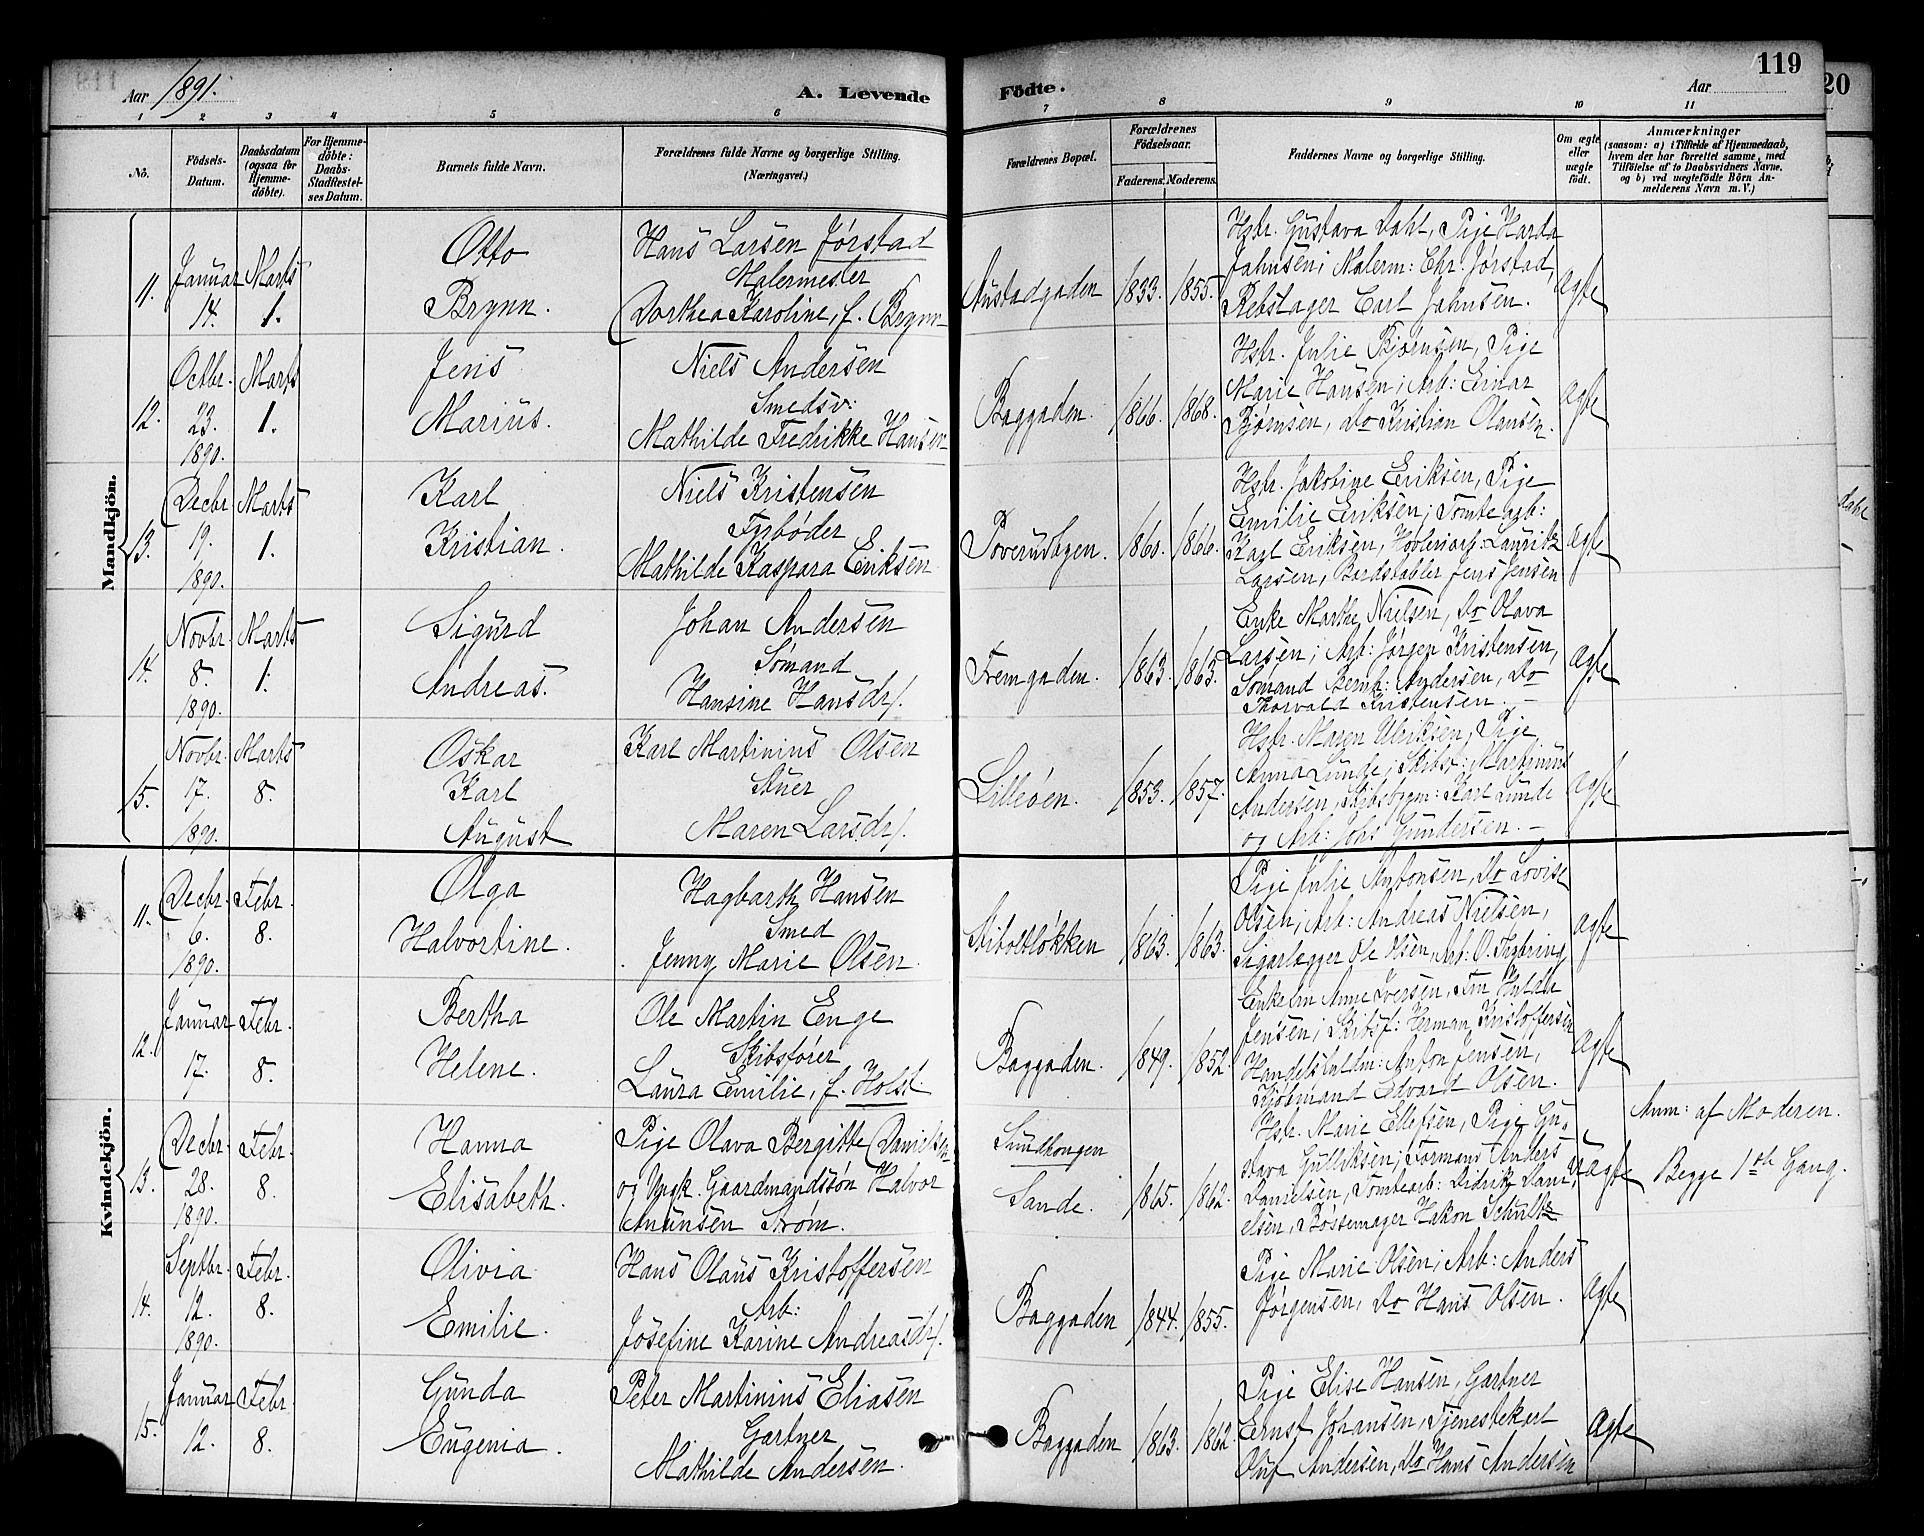 119
Aar 1891.
A. Levende Födte.
Aar
1 2 3 4 5 6 7 8 9 10 11
No.
Födsels-Datum.
Daabsdatum (ogsaa for Hjemmedöbte).
For Hjemmedöbte: Daabs-Stadfestelses Datum.
Barnets fulde Navn.
Forældrenes fulde Navne og borgerlige Stilling. (Næringsvei.)
Forældrenes Bopæl.
Forældrenes Födselsaar.
Faderens. Moderens.
Faddernes Navne og borgerlige Stilling.
Om ægte eller uægte födt.
Anmærkninger
(saasom: a) i Tilfælde af Hjemmedaab, hvem der har forrettet samme, med Tilföielse af to Daabsvidners Navne, og b) ved uægtefödte Börn Anmelderens Navn m. V.)
Mandkjön.
11.
Januar 14.
Marts 1.
Otto
Brynn.
Hans Larsen Jørstad
Malermester
Dorthea Karoline, f. Brynn
Austadgaden
1833. 1855.
Hstr. Gustava Dahl, Pige Harda
Jahnsen; Malerm: Chr. Jørstad,
Rebslager Carl Jahnsen.
Ægte
12.
Octbr. 23. 1890.
Marts 1.
Jens
Marius.
Niels Andersen
Smedsv:
Mathilde Fredrikke Hansen
Baggaden.
1866. 1868.
Hstr. Julie Bjørnsen, Pige
Marie Hansen; Arb: Einar
Bjørnsen, do Kristian Olausen.
Ægte
13.
Decbr 19. 1890.
Marts 1.
Karl
Kristian.
Niels Kristensen
Fyrbøder
Mathilde Kaspara Eriksen
Poverudbyen.
1860. 1866.
Hstr. Jakobine Eriksen, Pige
Emilie Eriksen; Tomtearb:
Karl Eriksen, Høvleriarb: Lauritz
Larsen, Bordstabler Jens Jensen
Ægte
14.
Novbr. 8. 1890.
Marts 1.
Sigurd
Andreas.
Johan Andersen
Sømand
Hansine Hansdr.
Fremgaden.
1863. 1863.
Enke Marthe Nielsen, Do Olava
Larsen; Arb: Jørgen Kristensen,
Sømand Bernh: Andersen, Do
Thorvald Kristensen. —
Ægte
15.
Novbr. 17. 1890.
Marts 8.
Oskar
Karl
August
Karl Martinius Olsen
Stuer
Maren Larsdr.
Lilleøen.
1853. 1857.
Hstr. Maren Ulriksen, Pige
Anna Lunde; Skibst: Martinius
Andersen, Skibstgm: Karl Lunde
og Arb: Johs Gundersen. —
Ægte
Kvindekjön.
11.
Decbr. 6. 1890.
Febr. 8.
Olga
Halvortine.
Hagbarth Hansen
Smed
Jenny Marie Olsen.
Stiboltløkken
1863. 1863.
Pige Julie Antonsen, Do Lovise
Olsen; Arb: Andreas Nielsen,
Sigarlægger Ole Olsen, Arb: O.
Ægte
12.
Januar 17.
Febr. 8.
Bertha
Helene.
Ole Martin Enge
Skibsfører
Laura Emilie, f. Holst
Baggaden.
1849. 1852.
Enkefru Anne Iversen, Fru Hulda
Jensen; Skibsf: Herman Kristoffersen
Handelsfuldm: Anton Jensen,
Kjøbmand Edvard Olsen.
Ægte
13.
Decbr. 28. 1890.
Febr. 8.
Hanna
Elisabeth.
Pige Olava Bergitte Danielsen
og Ungk. Gaardmandssøn Halvor
Amunsen Strøm.
Smedhougen
Sande.
1865. 1862.
Hstr. Marie Ellefsen, Pige Gu-
stava Gulliksen; Formand Anders
Danielsen, Tomtearb: Didrik Dani-
elsen, Bøssemager Hakon Schultz
Uægte
Anm: af Moderen.
Begge 1ste Gang.
14.
Septbr. 12. 1890.
Febr. 8.
Olivia
Emilie.
Hans Olaus Kristoffersen
Arb:
Josefine Karine Andreasdr.
Baggaden
1844. 1855.
Pige Marie Olsen; Arb: Anders
Jørgensen, Do Hans Olsen.
Ægte
15.
Januar 12.
Febr. 8.
Gunda
Eugenia.
Peter Martinius Eliasen
Gartner
Mathilde Andersen.
Baggaden
1863. 1862.
Pige Elise Hansen, Gartner
Ernst Johansen, Tjenestekarl
Oluf Andersen, Do Hans Andersen
Ægte